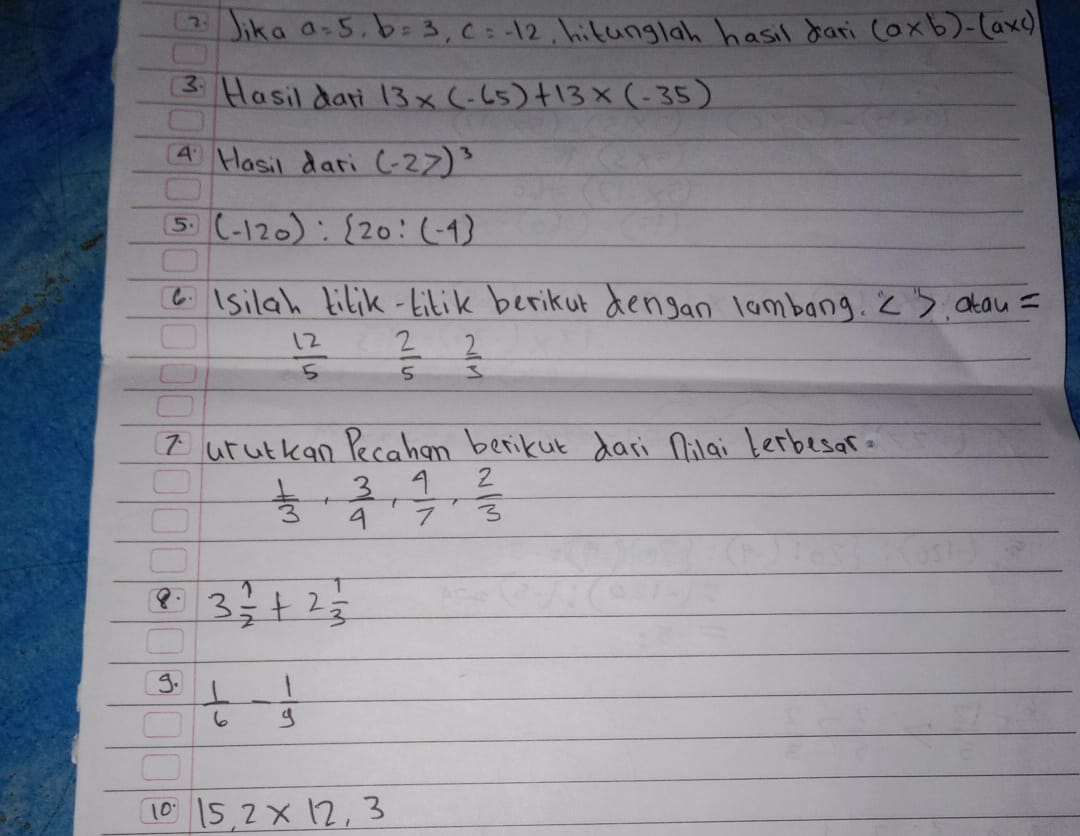 2. Jika a=5, b=3, c=-12, hitunglah hasil dari (axb)-(axc)
3. Hasil dari 13 x (-65)+13 x (-35)
4. Hasil dari (-27)³
5. (-120) : {20 : (-4}
6. Isilah titik-titik berikut dengan lambang. < > , atau =
12/5 2/5 2/3
7. urutkan Pecahan berikut dari Nilai terbesar =
1/3 , 3/4 , 4/7 , 2/3
8. 3 1/2 + 2 1/3
9. 1/6 - 1/9
10. 15,2 x 12,3